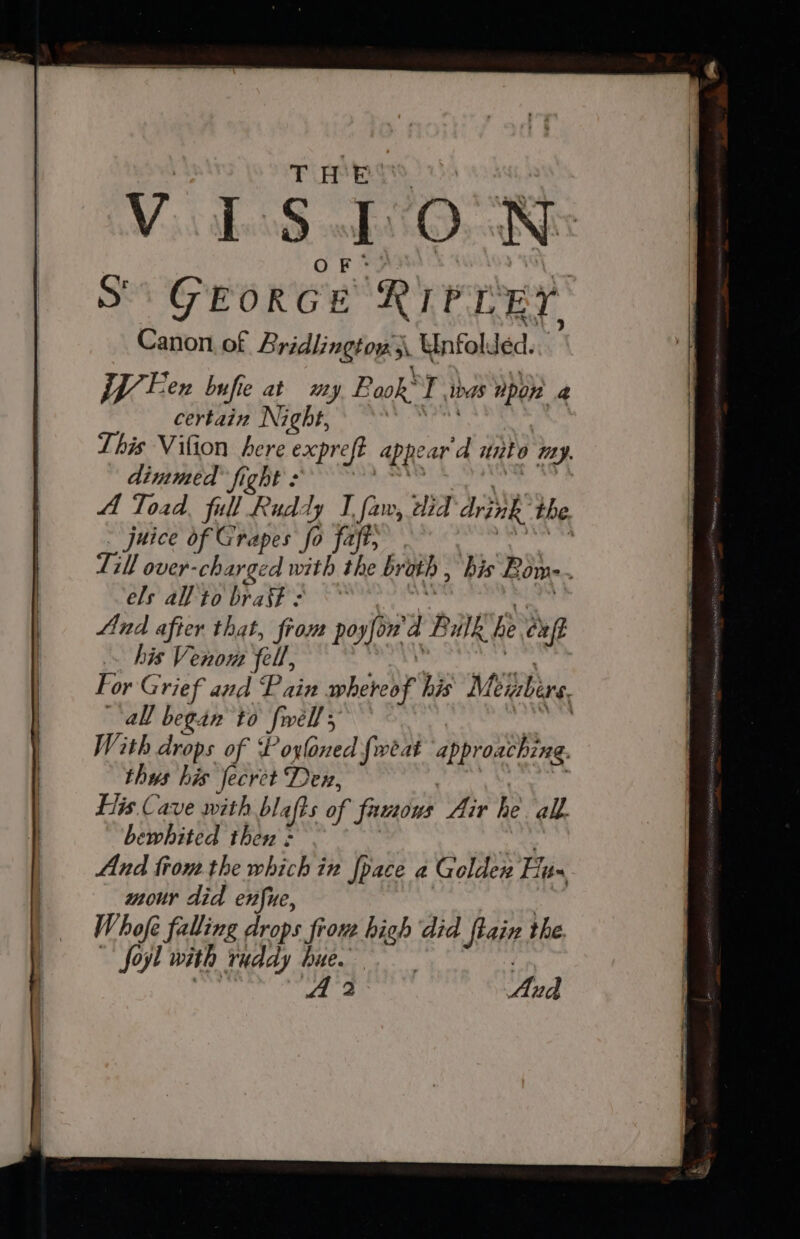 THE
VISION
OF
Sr GEORGE RIPLEY,
Canon of Bridlington, Unfolded.
WHen busie at my Book I was upon a
certain Night,
This Vision here exprest appear'd unto my
dimmed sight:
A Toad full Ruddy I saw, did drink the
juice of Grapes so fast,
Till over-charged with the broth, his Bow-
els all to brast:
And after that, from poyson'd Bulk he cast
his Venom fell,
For Grief and Pain whereof his Members
all began to swell;
With drops of Poysoned sweat approaching
thus his secret Den,
His Cave with blasts of fumous Air he all
bewhited then:
And from the which in space a Golden Hu-
mour did ensue,
Whose falling drops from high did stain the
soyl with ruddy hue.
A 2 And